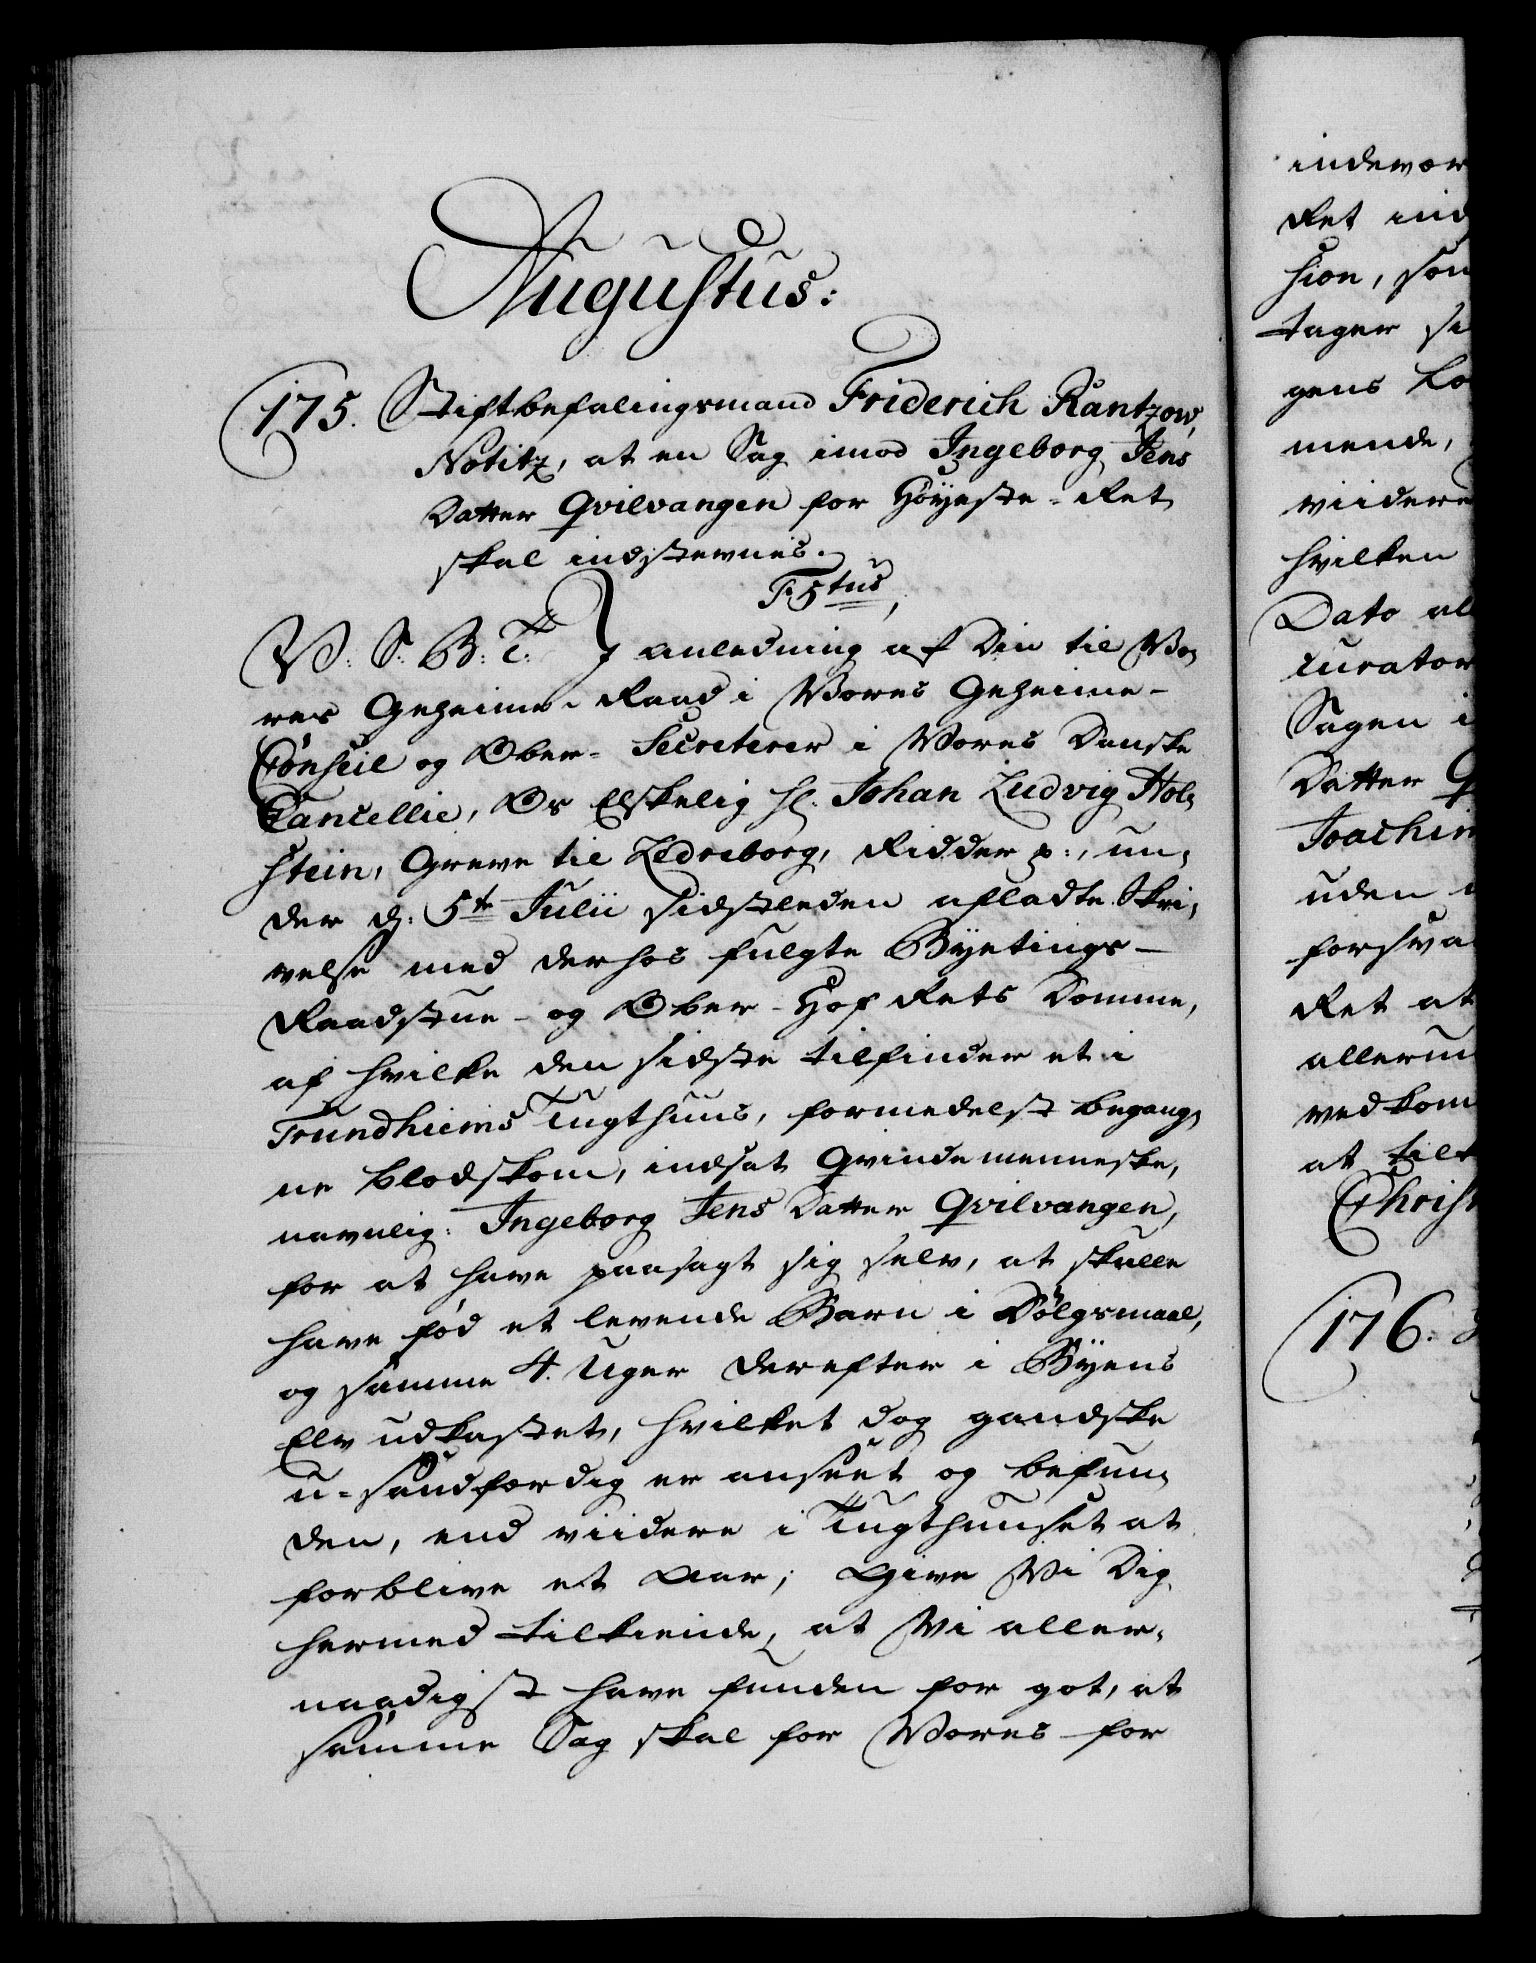 Augustus:
175. Stiftbefalingsmand Friderich Rantzow,
Notitz, at en Sag imod Ingeborg Jens
Datter Qvilvangen for Høyeste-Ret
skal indstevnes.
F 5tus,
W: S: B: T: J anledning af Din til Vo-
res Geheime-Raad i Vores Geheime-
Conseil og Ober-Secreterer i Vores Danske
Cancellie, Os Elskelig Hl: Johan Ludvig Hol-
stein, Greve til Ledreborg, Ridder p:, un-
der d: 5te Julii sidstleden afladte Skri-
velse med derhos fulgte Byetings-
Raadstue- og Ober-Hof Rets Domme,
af hvilke den sidste tilfinder et i
Trundhiems Tugthuus, formedelst begang-
ne Blodskom, indsat Qvindemenneske,
navnlig: Ingeborg Jens Datter Qvilvangen,
for at have paasagt sig selv, at skulle
have fød et levende Barn i Dølgsmaal,
og samme 4. Uger derefter i Byens
Elv udkastet, hvilket dog gandske
u-sandfærdig er anseet og befun-
den, end viidere i Tugthuuset at
forblive et Aar; Give Vi Dig
hermed tilkiende, at Vi aller-
naadigst have funden for got, at
samme Sag skal for Vores for
indevær
Ret ind
sion, som
tager si
gens Lo
mende,
viidere
hvilken
Dato al
curator
Sagen i
Datter Q
Joachim
uden
forsva
Ret at
allerun
vedkom
at tilt
Christ
176.